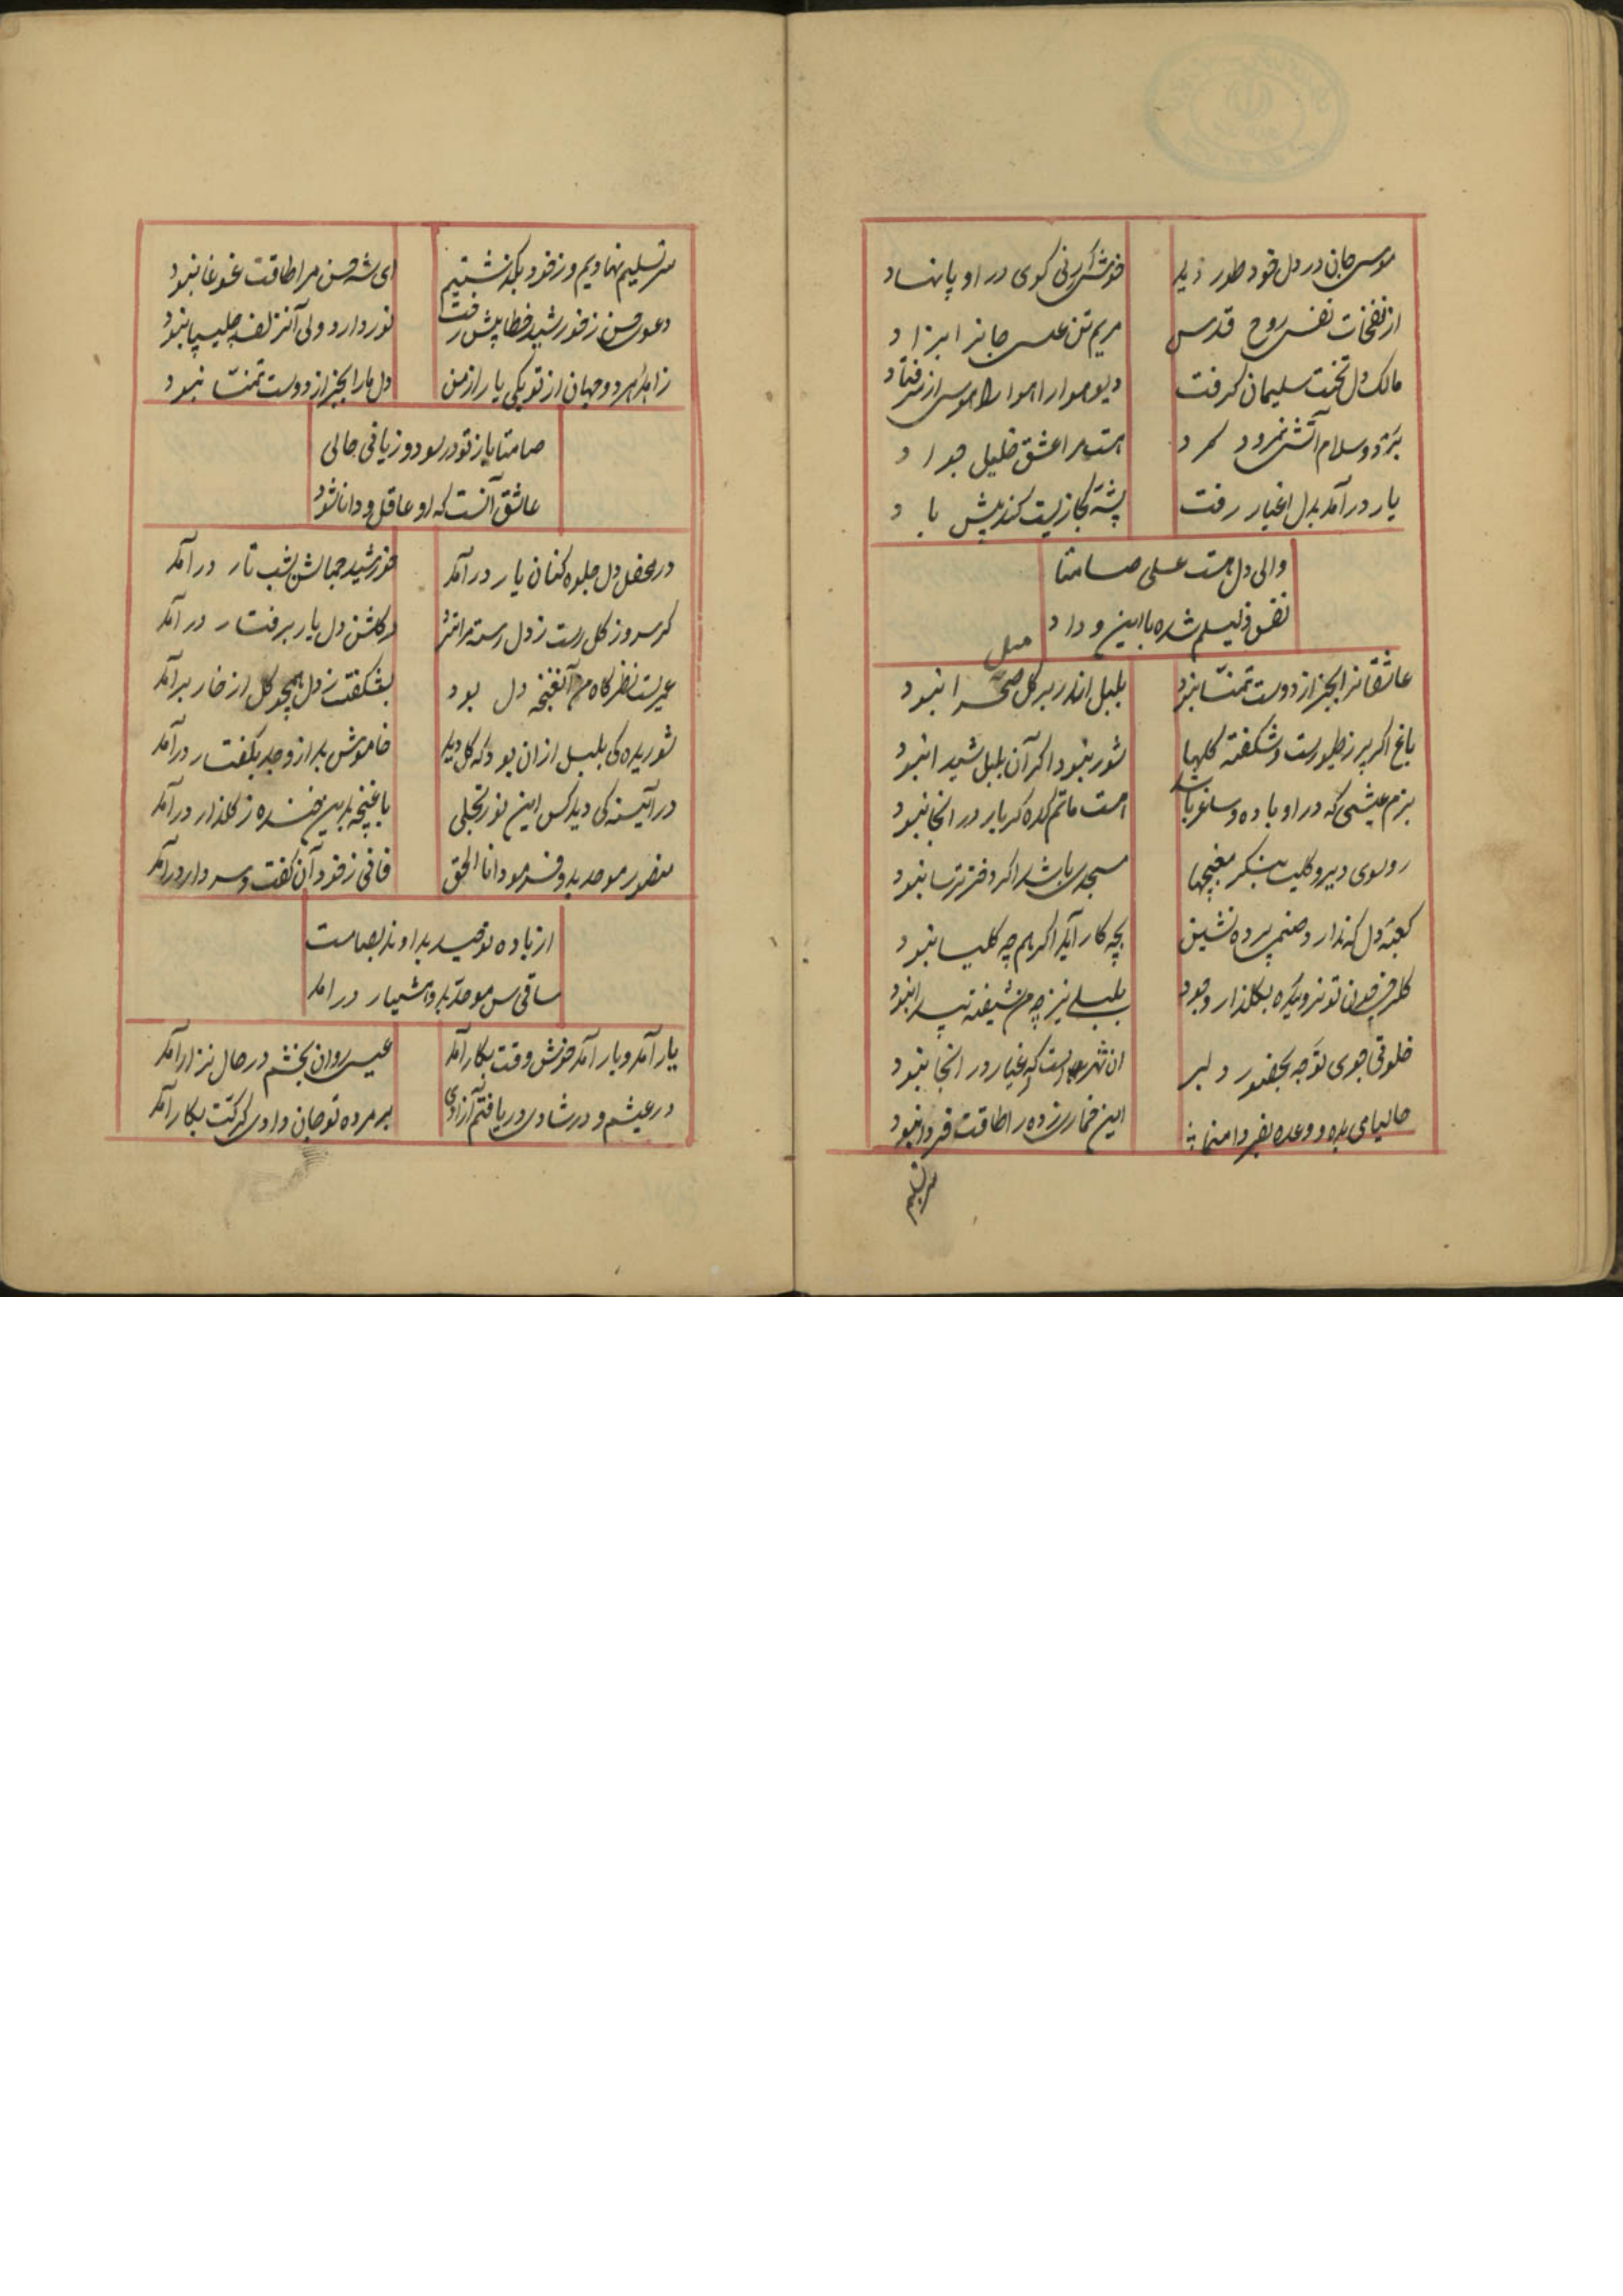 موسی جان در دل خود طور دید
خوش ارنی کوی در او پا نهاد
از نفخات نفس روح قدس
مریم تن عیسی جانرا بزاد
مالک دل تخت سلیمان کرفت
دیو هوا را هوس از سر فتاد
برد و سلام آتش نمرود کرد
هست مرا عشق خلیل جواد
یار در آمد بدل اغیار رفت
پشه کجا زیست کند پیش باد
والی دل هست علی صامتا
نفس و لیلم شده با این وداد
عاشقانرا بجز از دوست تمنا نبود
بلبل اندر بر کل صحرا نبود
باغ اکر پر ز طیورست و شکفته کلها
شور نبود اکر آن بلبل شیدا نبود
بزم عیشی که در او باده و ساغر باشد
هست ماتم کده کر یار در انجا نبود
رو بسوی دیر و کلیسا بنکر مغبچها
مسجدی باشد اکر دختر ترسا نبود
کعبه دل که ندارد صنم پرده نشین
بچه کار آید اکر هم چه کلیسا نبود
کلرخی چون تو نرویده بکلذار وجود
بلبلی نیز چه من شیفته پیدا نبود
خلوتی جوی توجه بحضور دلبر
ان شهر است که اغیار در انجا نبود
حالیا می بده و وعده بفردا منما
این خمار زده را طاقت فردا نبود
سر تسلیم
سر تسلیم نهادیم و ز خود بکذشتیم
ای شه حسن مرا طاقت غوغا نبود
دعوی حسن ز خورشید خطا پیش رفت
نور دارد ولی آنزلف چلیپا نبود
زاهد هر دو جهان از تو یکی یار از من
دل ما را بجز از دوست تمنا نبود
صامتا باز تو در سود و زیانی حالی
عاشق آنست که او عاقل و دانا نشود
در محفل دل جلوه کنان یار در آمد
خورشید جمالش بشب تار در آمد
کر سرو ز کل رست ز دل رسته مرا سرو
در کلشن دل یار برفتار در آمد
عمریست نظر کاه من آنغنچه دل بود
بشکفت ز دل همچو کل از خار برآمد
شوریده کی بلبل از ان بود که کل دید
خاموش بد از وجد بکفتار در آمد
در آئینه کی دید کس این نور تجلی
با غنچه بد این خنده ز کلذار در آمد
منصور موحد بد و فرمود انا الحق
فانی ز خود آن کفت و سر دار در آمد
از باده توحید بداوند بصامت
ساقی موحد بد و هشیار در امد
یار آمد و بار آمد خوش وقت بکار آمد
عیسی روان بخشم در حال نزار آمد
در عیشم و در شادی دریافتم آزادی
بر مرده تو جان دادی کر کت بکار آمد